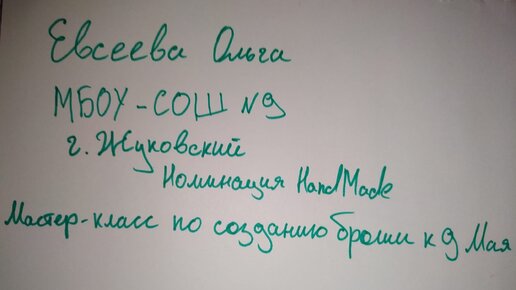 Евсеева Ольга
МБОУ-СОШ №9
г. Жуковский
Номинация HandMade
Мастер-класс по созданию броши к 9 Мая